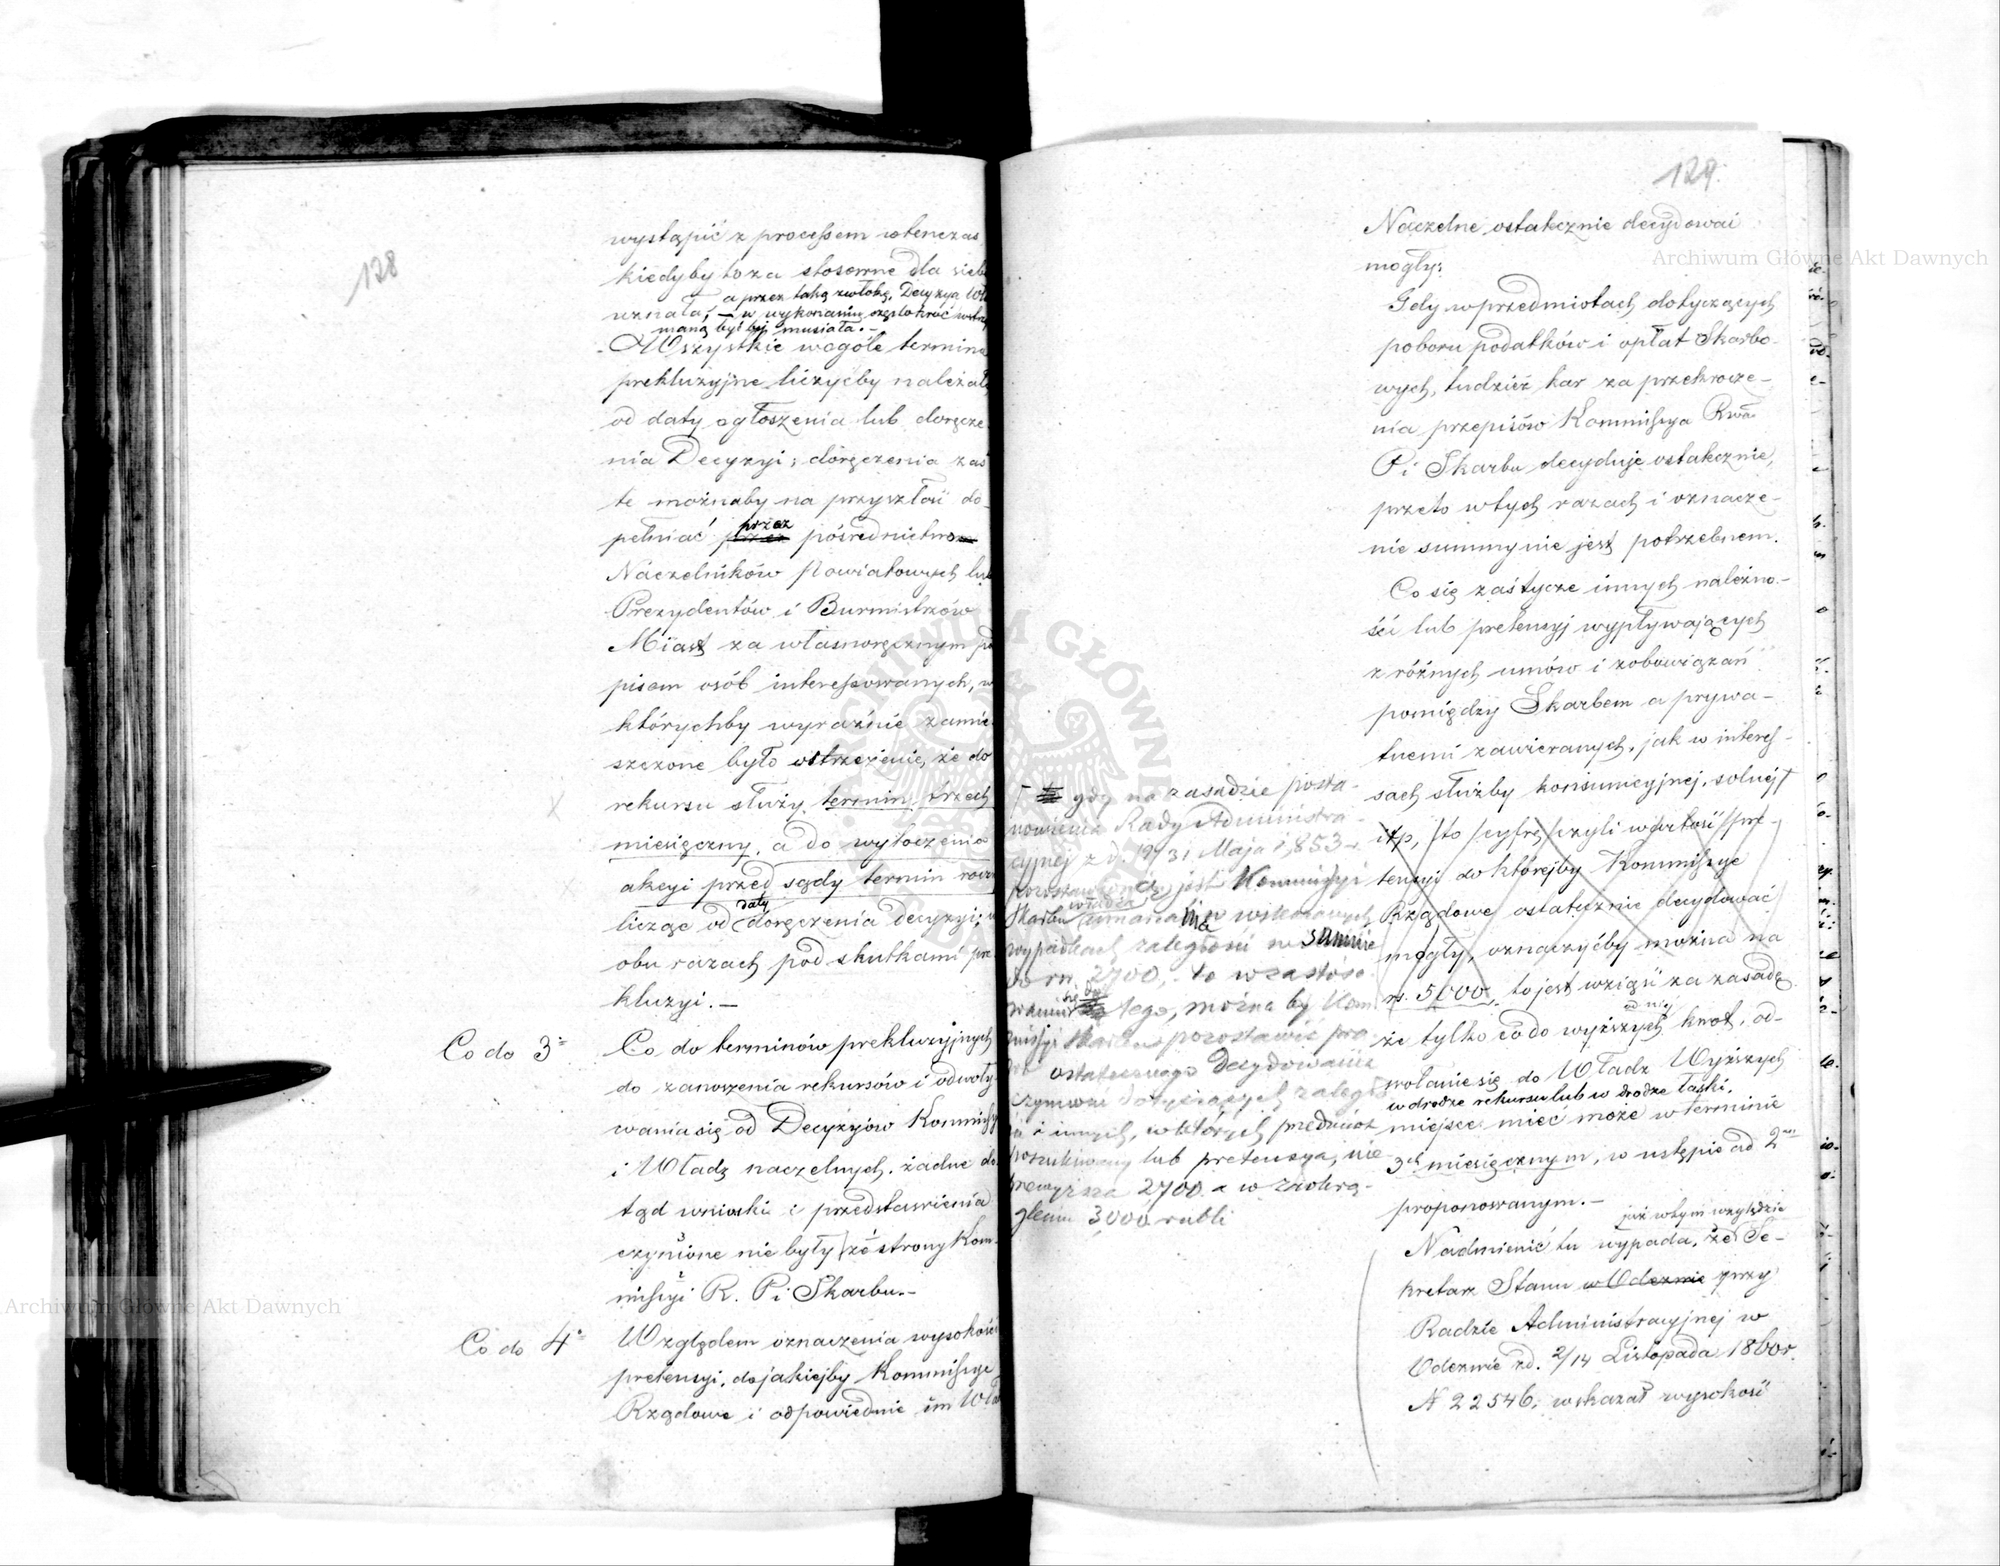 128
wystąpić z processem wtenczas,
kiedyby to za stosowne dla siebie
a przez taką zwłokę, Decyzya
uznała, — w wykonaniu częstokroć
maną być by musiała. —
Wszystkie wogóle termina
prekluzyjne liczyćby należało
od daty ogłoszenia lub doręcze
nia Decyzyi; doręczenia zaś
te możnaby na przyszłość do-
pełniać przez pośrednictwo
Naczelników Powiatowych lub
Prezydentów i Burmistrzów
Miast za własnoręcznym pod
pisem osób interessowanych, w
którychby wyraźnie zamie
szczone było ostrzeżenie, że do
rekursu służy termin trzech
miesięczny, a do wytoczenia
akcyi przed sądy termin
daty
licząc od doręczenia decyzyi; w
obu razach pod skutkami pre
kluzyi. —
Co do 3° Co do terminów prekluzyjnych
do zanoszenia rekursów i odwoły-
wania się od Decyzyów Kommissyi
i Władz naczelnych, żadne do
tąd wnioski i przedstawienia
czynione nie były ze strony Kom-
missyi R. P. i Skarbu. —
Co do 4° Względem oznaczenia wysokości
pretensyi, do jakiejby Kommissye
Rządowe i odpowiednie im
129.
Naczelne ostatecznie decydować
mogły:
Gdy w przedmiotach dotyczących
poboru podatków i opłat Skarbo-
wych, tudzież kar za przekrocze-
nia przepisów Kommissya Rwa
P. i Skarbu decyduje ostatecznie,
przeto w tych razach i oznacze-
nie summy nie jest potrzebnem.
Co się zaś tycze innych należno-
ści lub pretensyj wypływających
z różnych umów i zobowiązań
pomiędzy Skarbem a prywa-
tnemi zawieranych, jak w interes-
sach służby konsumcyjnej, solnej
itp, to cyfrę czyli wartość pre-
tensyi do którejby Kommissye
Rządowe ostatecznie decydować
mogły, oznaczyćby można na
rs. 5000, to jest wziąść za zasadę
że tylko co do wyższych od niej kwot, od-
wołanie się do Władz Wyższych
w drodze rekursu lub w drodze łaski,
miejsce mieć może w terminie
3ch miesięcznym, w ustępie ad 2
proponowanym. —
już w tym względzie
Nadmienić tu wypada, że Se-
kretarz Stanu w Odezwie przy
Radzie Administracyjnej w
Odezwie z d. 2/14 Listopada 1860 r.
N 22546, wskazał wysokość
gdy na zasadzie posta-
nowienia Rady Administra-
cyjnej z d. 19/31 Maja 1853 r.
jest Kommissyi
Skarbu władza umarzania w wskazanych
wypadkach zaległości w summie
do rs. 2700, to w zastoso
waniu się do tego, można by Kom
missyi Skarbu pozostawić pra
wo ostatecznego decydowania
dotyczących zaległo
ści i innych, w których przedmiot
poszukiwany lub pretensya, nie
przewyższa 2700 a w zaokrą-
gleniu 3000 rubli
Archiwum Główne Akt Dawnych
Archiwum Główne Akt Dawnych